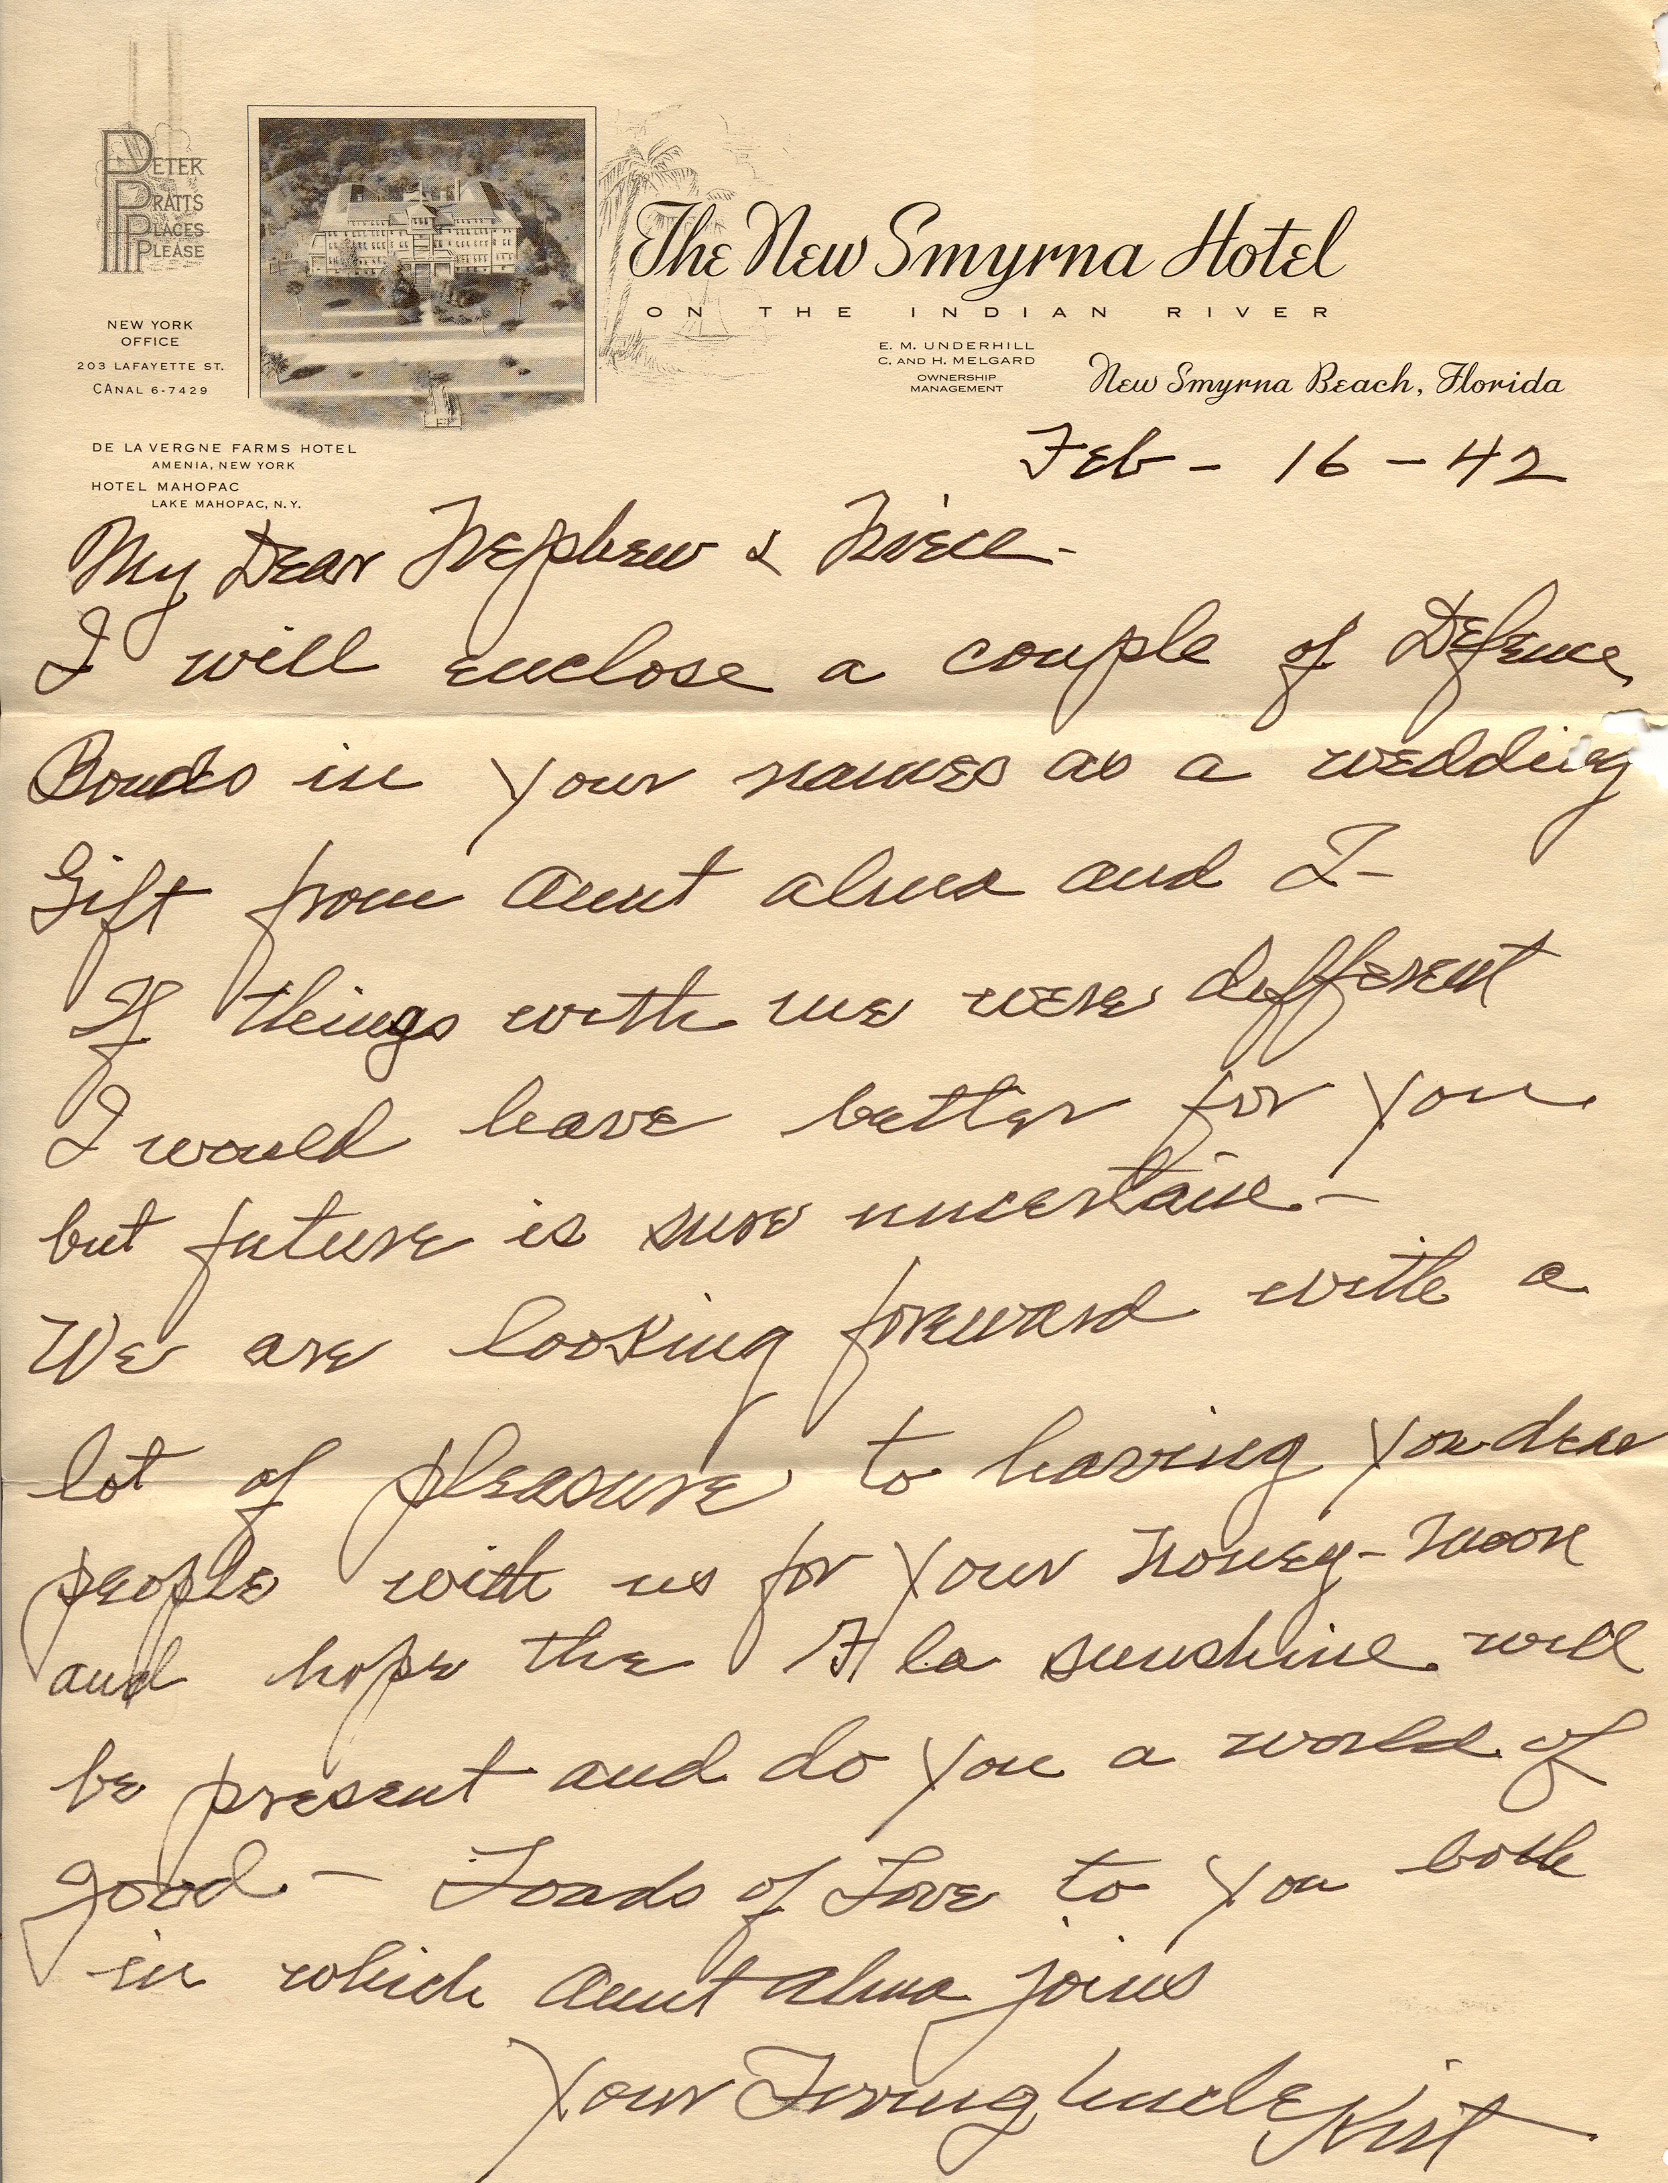 PETER
PRATTS
PLACES
PLEASE
NEW YORK
OFFICE
203 LAFAYETTE ST.
CANAL 6-7429
DE LA VERGNE FARMS HOTEL
AMENIA, NEW YORK
HOTEL MAHOPAC
LAKE MAHOPAC, N.Y.
The New Smyrna Hotel
ON THE INDIAN RIVER
E. M. UNDERHILL
C. AND H. MELGARD
OWNERSHIP
MANAGEMENT
New Smyrna Beach, Florida
Feb - 16 - 42
My Dear Nephew & Niece -
I will enclose a couple of Defence
Bonds in your names as a wedding
Gift from Aunt Alma and I -
If things with me were different
I would leave better for you
but future is sure uncertain. -
We are looking foreward with a
lot of pleasure to having you dear
people with us for your Honey-moon
and hope the Fla sunshine will
be present and do you a world of
good. - Loads of Love to you both
in which Aunt Alma joins
Your Loving Uncle Kist